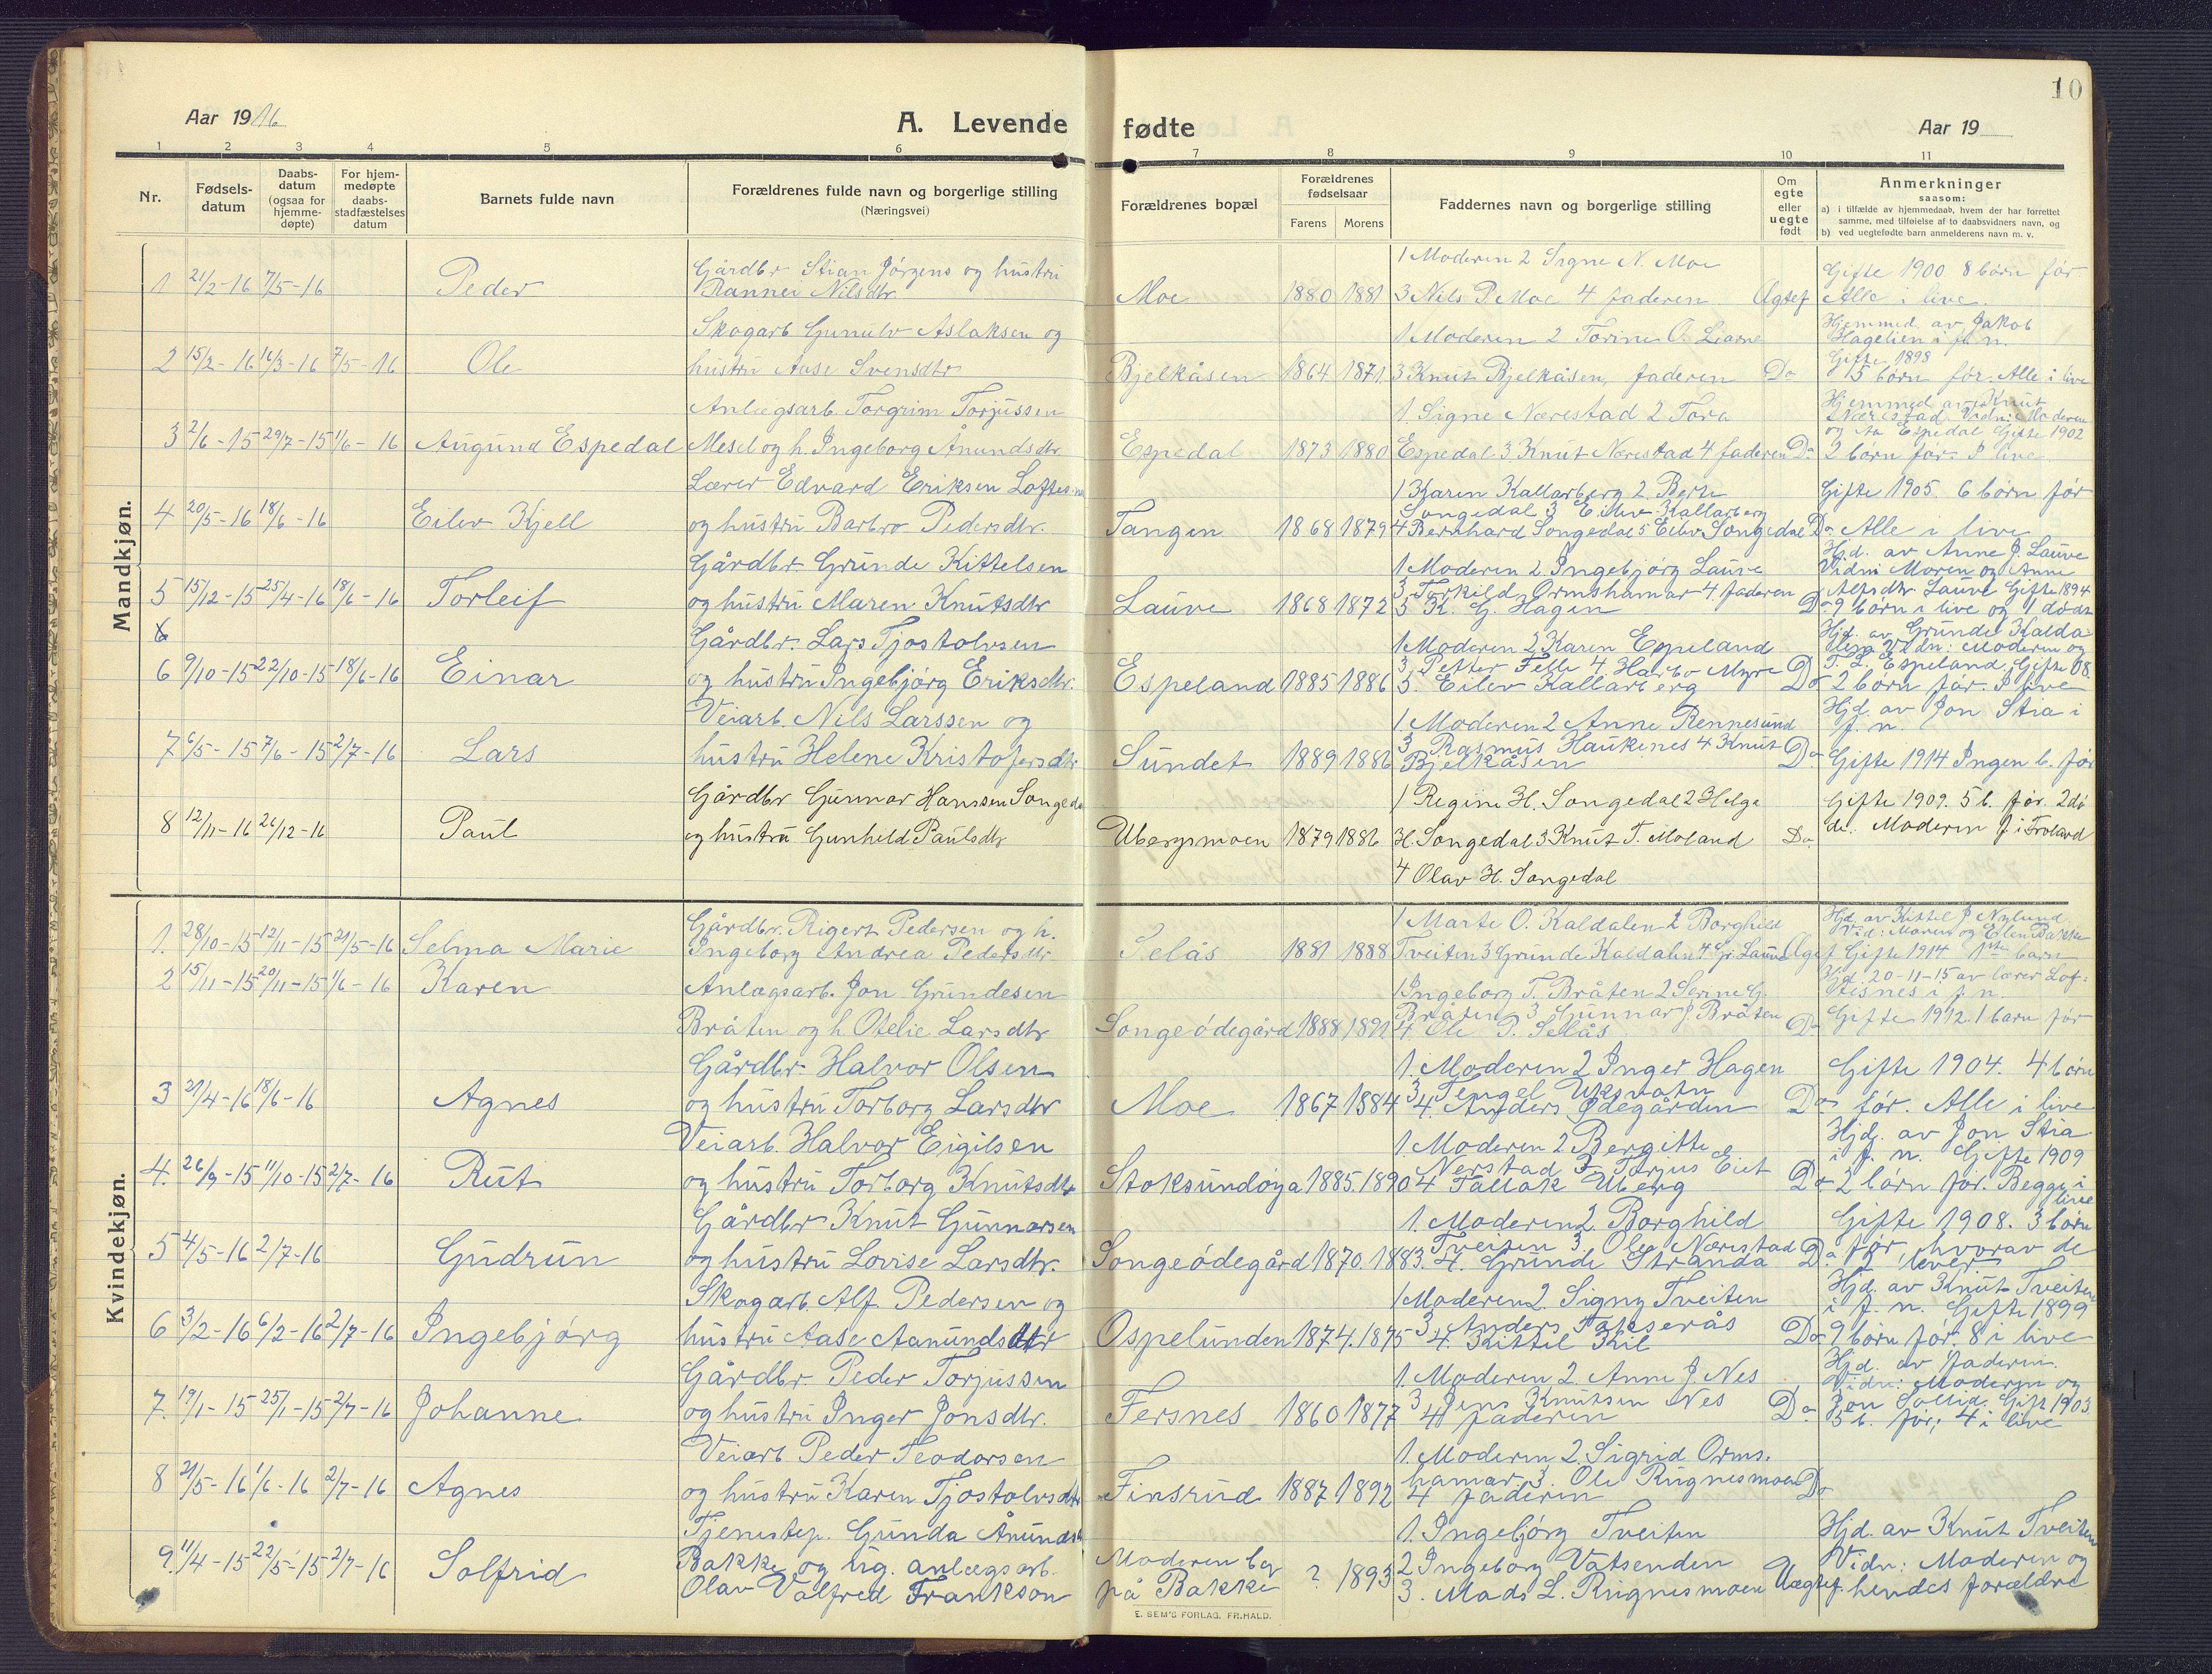 10
Aar 1916
A. Levende
fødte
Aar 19
1 2 3 4 5 6 7 8 9 10 11
Nr.
Fødsels-
datum
Daabs-
datum
(ogsaa for
hjemme-
døpte)
For hjem-
medøpte
daabs-
stadfæstelses
datum
Barnets fulde navn
Forældrenes fulde navn og borgerlige stilling
(Næringsvei)
Forældrenes bopæl
Forældrenes
fødselsaar
Farens
Morens
Faddernes navn og borgerlige stilling
Om
egte
eller
uegte
født
Anmerkninger
saasom:
a) i tilfælde av hjemmedaab, hvem der har forrettet
samme, med tilføielse af to daabsvidners navn, og
b) ved uegtefødte barn anmelderens navn m. v.
Mandkjøn.
1 21/2-16 7/5-16 Peder
Gårdbr Stian Jörgens og hustru
Rannei Nilsdtr
Moe 1880 1881
1 Moderen 2 Signe N. Moe
3 Nils P. Moe 4 faderen Ægtef
Gifte 1900 8 börn för
Alle i live.
2 15/2-16 7/5-16 Ole
Skogarb Gunulv Aslaksen og
hustru Aase Svensdtr
Bjelkåsen 1864 1871.
1 Moderen 2 Torine O.
3 Knut Bjelkåsen, faderen Do
Hjemmed. av Jakob
Hagelien i f. n.
Gifte 1898
5 börn för. Alle i live
3 2/6-15 29/7-15 1/6-16 Augund Espedal
Anlægsarb. Torgrim Torjussen
Mesel og h. Ingeborg Ånundsdtr
Espedal 1873 1880
1. Signe Nærestad 2 Tora
Espedal 3. Knut Nærestad 4 faderen Do
Hjemmed av Knut
Nærestad Vidn: Moderen
og Aa Espedal Gifte 1902
2 börn för. I live
4 20/5-16 18/6-16 Eilev Kjell
Lærer Edvard Eriksen
og hustru Barbro Pedersdtr.
Tangen 1868 1879
1 Karen Kallarberg 2. Berte
Songedal 3 Eilev Kallarberg
4 Bernhard Songedal 5 Eilev Songedal Do
Gifte 1905. 6 börn för
Alle i live
5 15/12-15 25/4-16 18/6-16 Torleif
Gårdbr Grunde Kittelsen
og hustru Maren Knutsdtr
Lauve 1868 1872
1 Moderen 2. Ingebjörg Lauve
3 Torkild Ormshamar 4 faderen
5 K. G. Hagen Do
Hjd. av Anne J. Lauve
Vidni Moren og Anne
Alfsdtr Lauve Gifte 1894
9 börn i live og 1 dödt
6
6 9/10-15 22/10-15 18/6-16 Einar
Gårdbr. Lars Tjostolvsen
og hustru Ingebjörg Eriksdtr.
Espeland 1885 1886
1 Moderen 2 Karen Espeland
3. Petter Felle 4. Halvo Myre
5. Eilev Kallarberg Do
Hjd. av Grunde Kalda-
Vidn: Moderen og
T. L. Espeland. Gifte 08.
2 börn för. I live
7 6/5-15 7/6-15 2/7-16 Lars
Veiarb. Nils Larssen og
hustru Helene Kristofersdtr
Sundet 1889 1886
1 Moderen 2 Anne Rennesund
3 Rasmus Haukenes 4 Knut
Bjelkåsen Do
Hjd. av Jon Stia i
f. n.
Gifte 1914 Ingen b. för
8 12/11-16 26/12-16 Paul
Gårdbr Gunnar Hanssen Songedal
og hustru Gunhild Paulsdtr
Ubergsmoen 1879 1886
1 Regine H. Songedal 2 Helga
H. Songedal 3 Knut T. Moland Do.
4 Olav H. Songedal
Gifte 1909. 5 b. för. 2 dö
de. Moderen f. i Froland
Kvindekjøn.
1. 28/10-15 12/11-15 21/5-16 Selma Marie
Gårdbr. Rigert Pedersen og h.
Ingeborg Andrea Pedersdtr
Selås 1881 1888
1 Marte O. Kaldalen 2 Borghild
Tveiten 3 Grunde Kaldalen 4 Gr. Lauve Ægtef
Hjd. av Kittel J. Nylund
Vid: Moren og Ellen Bakke
Gifte 1914 1ste barn
2 15/11-15 20/11-15 1/6-16 Karen
Anlægsarb. Jon Grundesen
Bråten og h. Otelie Larsdtr
Songeödegård 1888 1891
1 Ingeborg T. Bråten 2 Serine G.
Bråten 3 Gunnar J. Bråten
4 Ole P. Selås Do
Hjd. 20-11-15 av lærer Lof-
tesnes i f. n.
Gifte 1912. 1 barn för
3 21/4-16 18/6-16 Agnes
Gårdbr. Halvor Olsen
og hustru Torborg Larsdtr
Moe 1867 1884
1. Moderen 2 Inger Hagen
3 Tengel Uksvatn
4. Anders Ödegården Do
Gifte 1904. 4 börn
för. Alle i live
4. 26/9-15 11/10-15 2/7-16 Rut
Veiarb. Halvor Eigilsen
og hustru Torborg Knutsdtr
Stoksundöya 1885. 1890
1. Moderen 2. Bergitte
Nerstad 3 Torjus Eiet
4 Tallak Uberg Do
Hjd. av Jon Stia
i f. n. Gifte 1909
2 börn för. Begge i
live
5 4/5-16 2/7-16 Gudrun
Gårdbr Knut Gunnarsen
og hustru Lovise Larsdtr.
Songeödegård 1870. 1883.
1. Moderen 2. Borghild
Tveiten 3. Ole Nærestad
4. Grunde Stranda Do
Gifte 1908. 3 börn
för, hvorav de
2 lever
6 3/2-16 6/2-16 2/7-16 Ingebjörg
Skogarb. Alf Pedersen og
hustru Aase Aamundsdtr
Ospelunden 1874. 1875
1 Moderen 2. Signy Tveiten
3 Anders
4. Kittil Kil Do
Hjd. av Knut Tveiten
i f. n. Gifte 1899
9 börn för. 8 i live
7. 19/1-15 25/1-15 2/7-16 Johanne
Gårdbr. Peder Torjussen
og hustru Inger Jonsdtr.
Fersnes 1860 1877
1. Moderen 2. Anne J. Nes
3 Jens Knutsen Nes
4 faderen Do
Hjd. av faderen.
Vidn: Moderen og
Jon Sollid. Gift 1903.
5 b. för, 4 i live
8 21/5-16 1/6-16 2/7-16 Agnes
Veiarb Peder Teodorsen
og hustru Karen Tjostolvsdtr
Finsrud 1887 1892
1. Moderen 2. Sigrid Orms-
hamar 3. Ole Rugnesmoen
4 faderen Do
9. 11/4-15 22/5-15 2/7-16 Solfrid
Tjenestep. Gunda Ånundsdtr
Bakke og ug. anlægsarb.
Olav Valfred Frankson
Moderen ber
på Bakke ? 1893
1. Ingebjörg Tveiten
2 Ingeborg Vatsenden
3. Mads L. Rugnesmoen Uægtef.
Hjd. av Knut Tveiten
Vidn: Moderen og
hendes forældre
E. SEM'S FORLAG, FR.HALD.